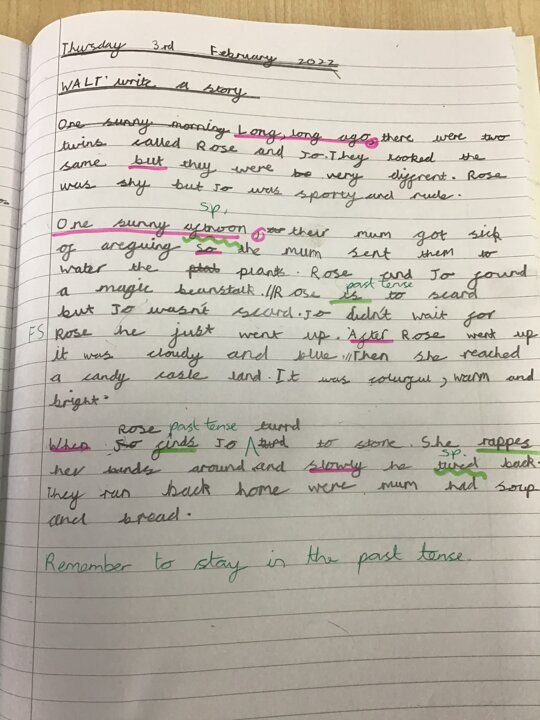 Thursday 3rd February 2022
WALT: write a story
One sunny morning Long, long ago, there were two
twins called Rose and Jo. They looked the
same but they were be very diffrent. Rose
was shy but Jo was sporty and rude.
sp.
One sunny aftnoon, their mum got sick
of areguing so the mum sent them to
water the plants. Rose and Jo found
past tense
a magic beanstalk.//Rose is to scard
but Jo wasn't scard. Jo didn't wait for
FS Rose he just went up. After Rose went up
it was cloudy and blue.//Then she reached
a candy casle land. It was colurful, warm and
bright.
Rose past tense turrd
When Jo finds Jo turd to stone. She rappes
sp.
her hands around and slowly he tured back.
They ran back home were mum had soup
and bread.
Remember to stay in the past tense.